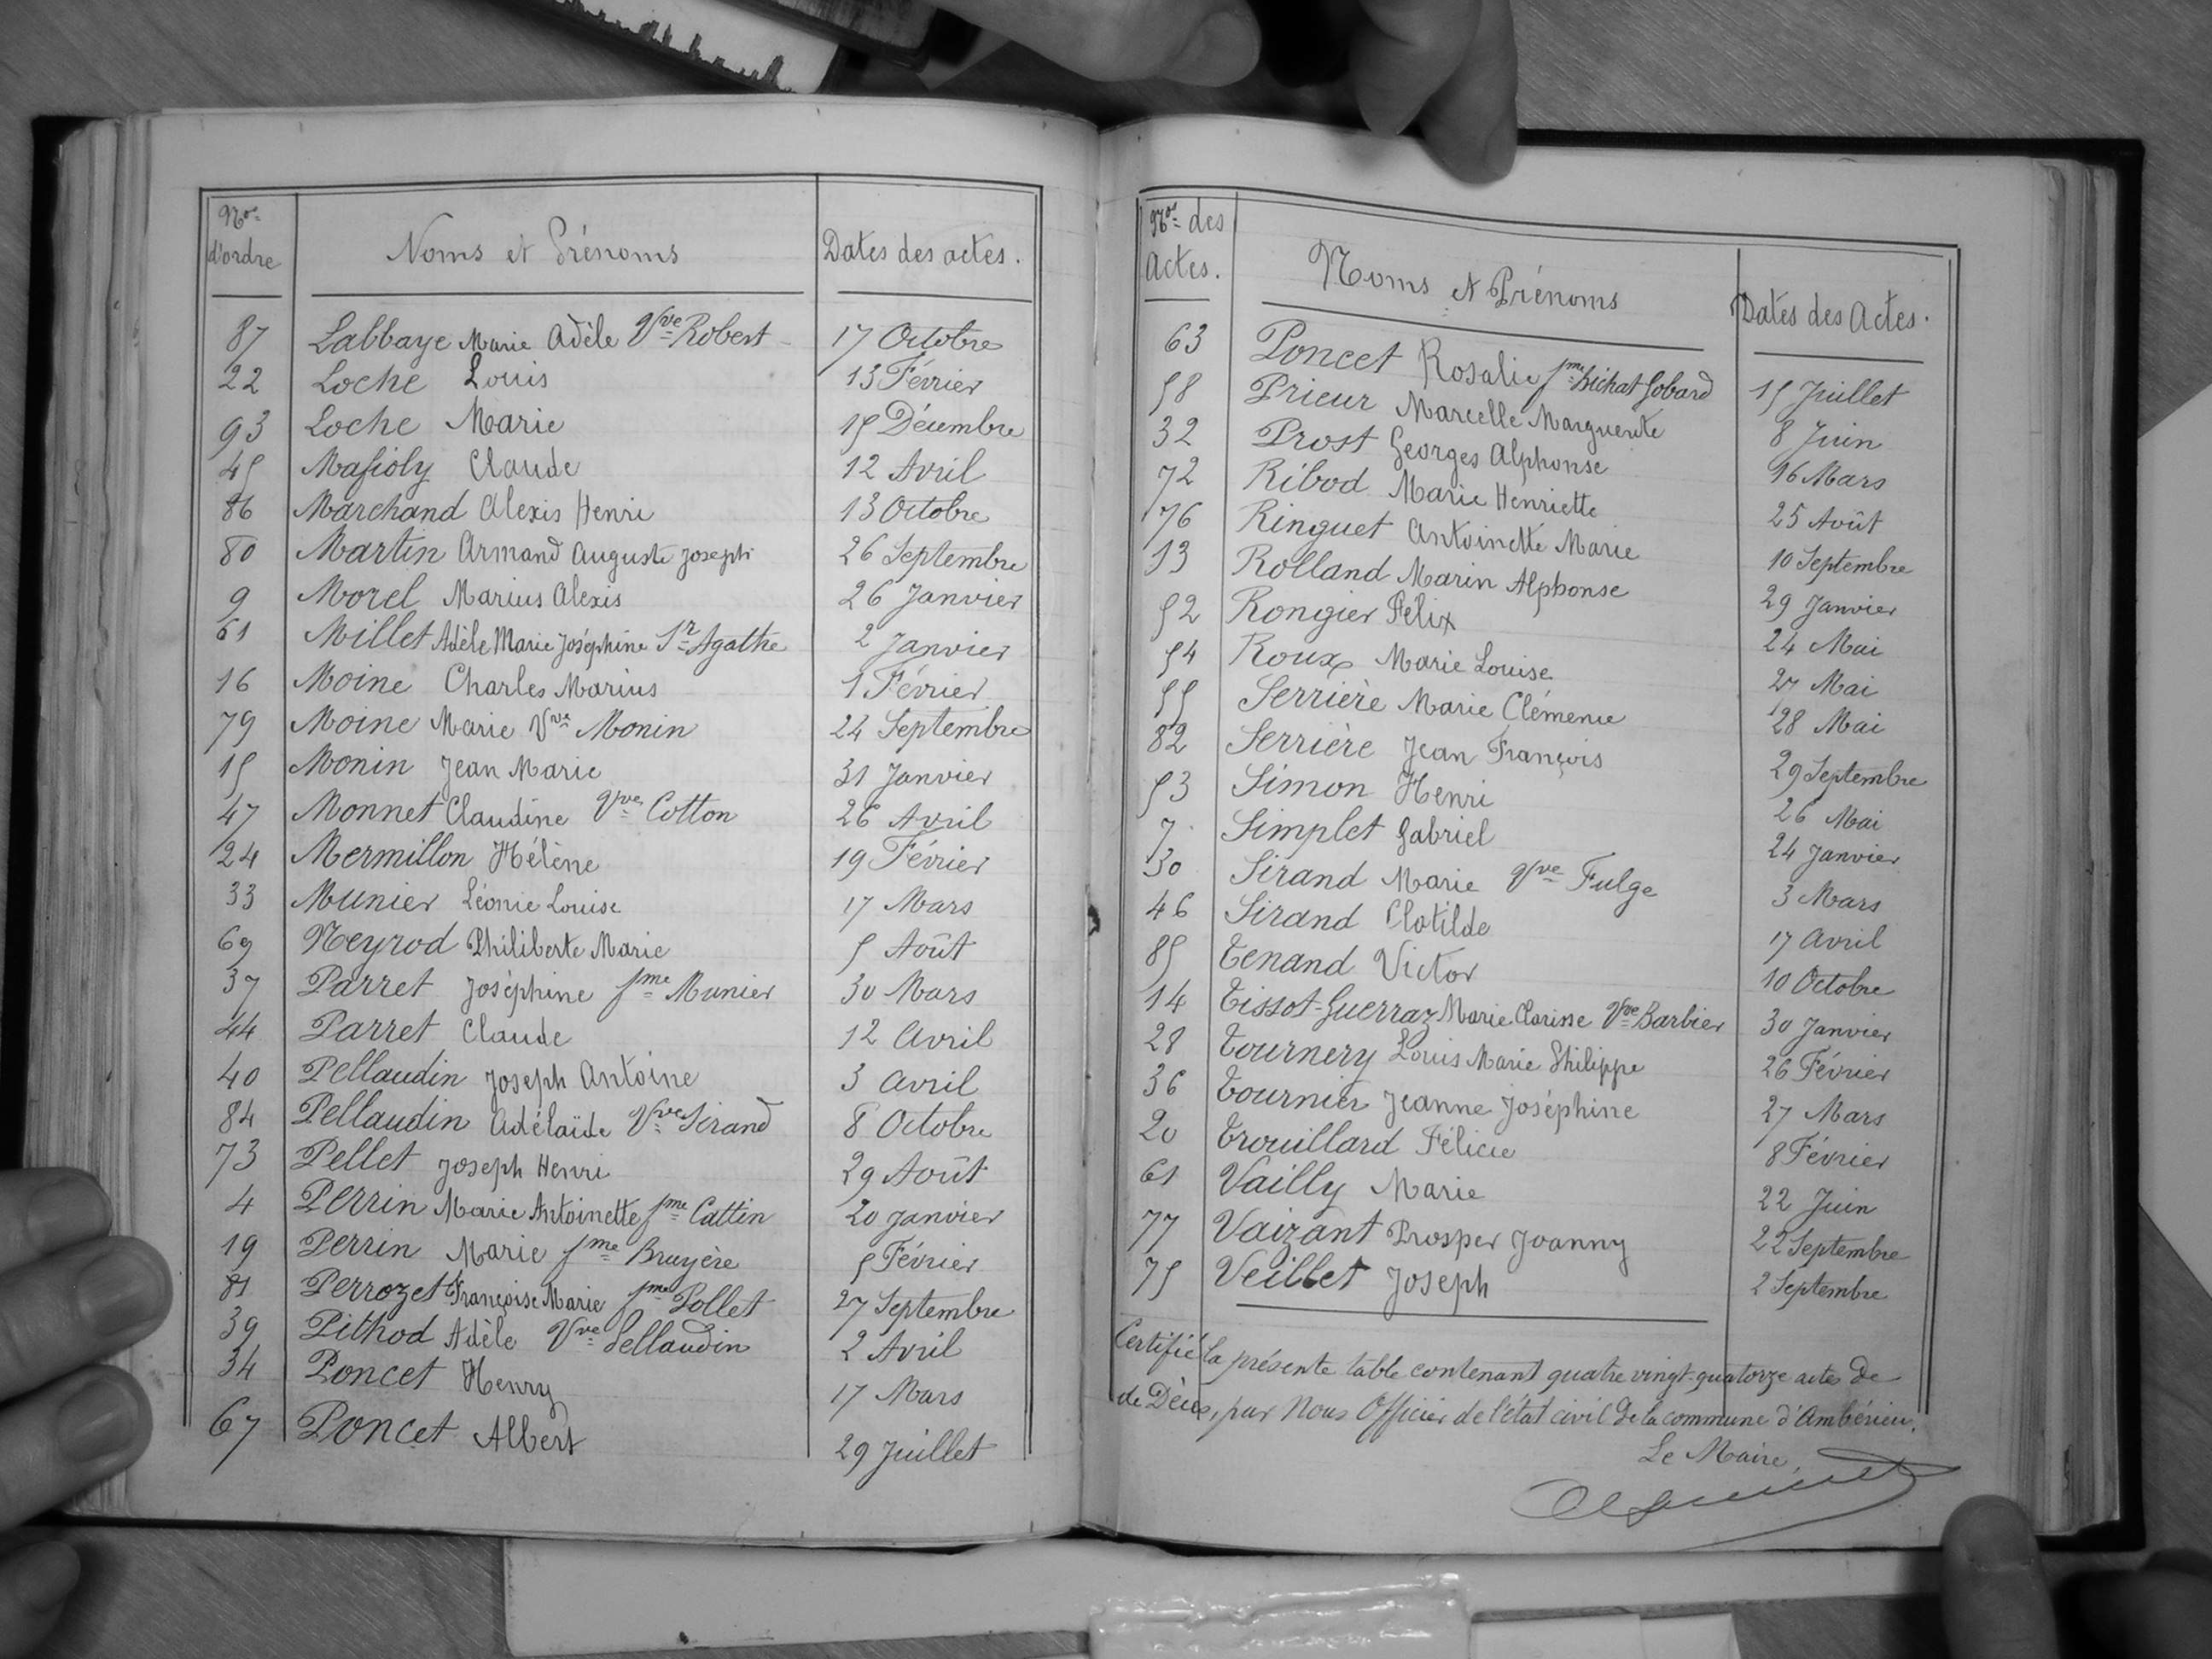 Nos d'ordre Noms et Prénoms Dates des actes.
87 Labbaye Marie Adèle Vve Robert 17 Octobre
22 Loche Louis 13 Février
93 Loche Marie 15 Décembre
45 Mafioly Claude 12 Avril
86 Marchand Alexis Henri 13 Octobre
80 Martin Armand Auguste Joseph 26 Septembre
9 Morel Marius Alexis 26 Janvier
61 Millet Adèle Marie Joséphine Sr Agathe 2 Janvier
16 Moine Charles Marius 1 Février
79 Moine Marie Vve Monin 24 Septembre
15 Monin Jean Marie 31 Janvier
47 Monnet Claudine Vve Cotton 26 Avril
24 Mermillon Hélène 19 Février
33 Munier Léonie Louise 17 Mars
69 Neyrod Philiberte Marie 5 Août
37 Parret Joséphine fme Munier 30 Mars
44 Parret Claude 12 Avril
40 Pellaudin Joseph Antoine 3 Avril
84 Pellaudin Adélaïde Vve Sirand 8 Octobre
73 Pellet Joseph Henri 29 Août
4 Perrin Marie Antoinette fme Cattin 20 Janvier
19 Perrin Marie fme Bruyère 5 Février
81 Perrozet Françoise Marie fme Pollet 27 Septembre
39 Pithod Adèle Vve Pellaudin 2 Avril
34 Poncet Henry 17 Mars
67 Poncet Albert 29 Juillet
Nos des Actes. Noms et Prénoms Dates des Actes.
63 Poncet Rosalie fme Bichat Gobard 15 Juillet
58 Prieur Marcelle Marguerite 8 Juin
32 Prost Georges Alphonse 16 Mars
72 Ribod Marie Henriette 25 Août
76 Ringuet Antoinette Marie 10 Septembre
13 Rolland Marin Alphonse 29 Janvier
52 Rongier Félix 24 Mai
54 Roux Marie Louise 27 Mai
55 Serrière Marie Clémence 28 Mai
82 Serrière Jean François 29 Septembre
53 Simon Henri 26 Mai
7 Simplet Gabriel 24 Janvier
30 Sirand Marie Vve Fulge 3 Mars
46 Sirand Clotilde 17 Avril
85 Tenand Victor 10 Octobre
14 Tissot-Guerraz Marie Clarisse Vve Barbier 30 Janvier
28 Tournery Louis Marie Philippe 26 Février
36 Tournier Jeanne Joséphine 27 Mars
20 Trouillard Félicie 8 Février
61 Vailly Marie 22 Juin
77 Vaizant Prosper Joanny 22 Septembre
75 Veillet Joseph 2 Septembre
Certifié la présente table contenant quatre vingt-quatorze actes de
de Décès, par Nous Officier de l'état civil de la commune d'Ambérieu.
Le Maire,